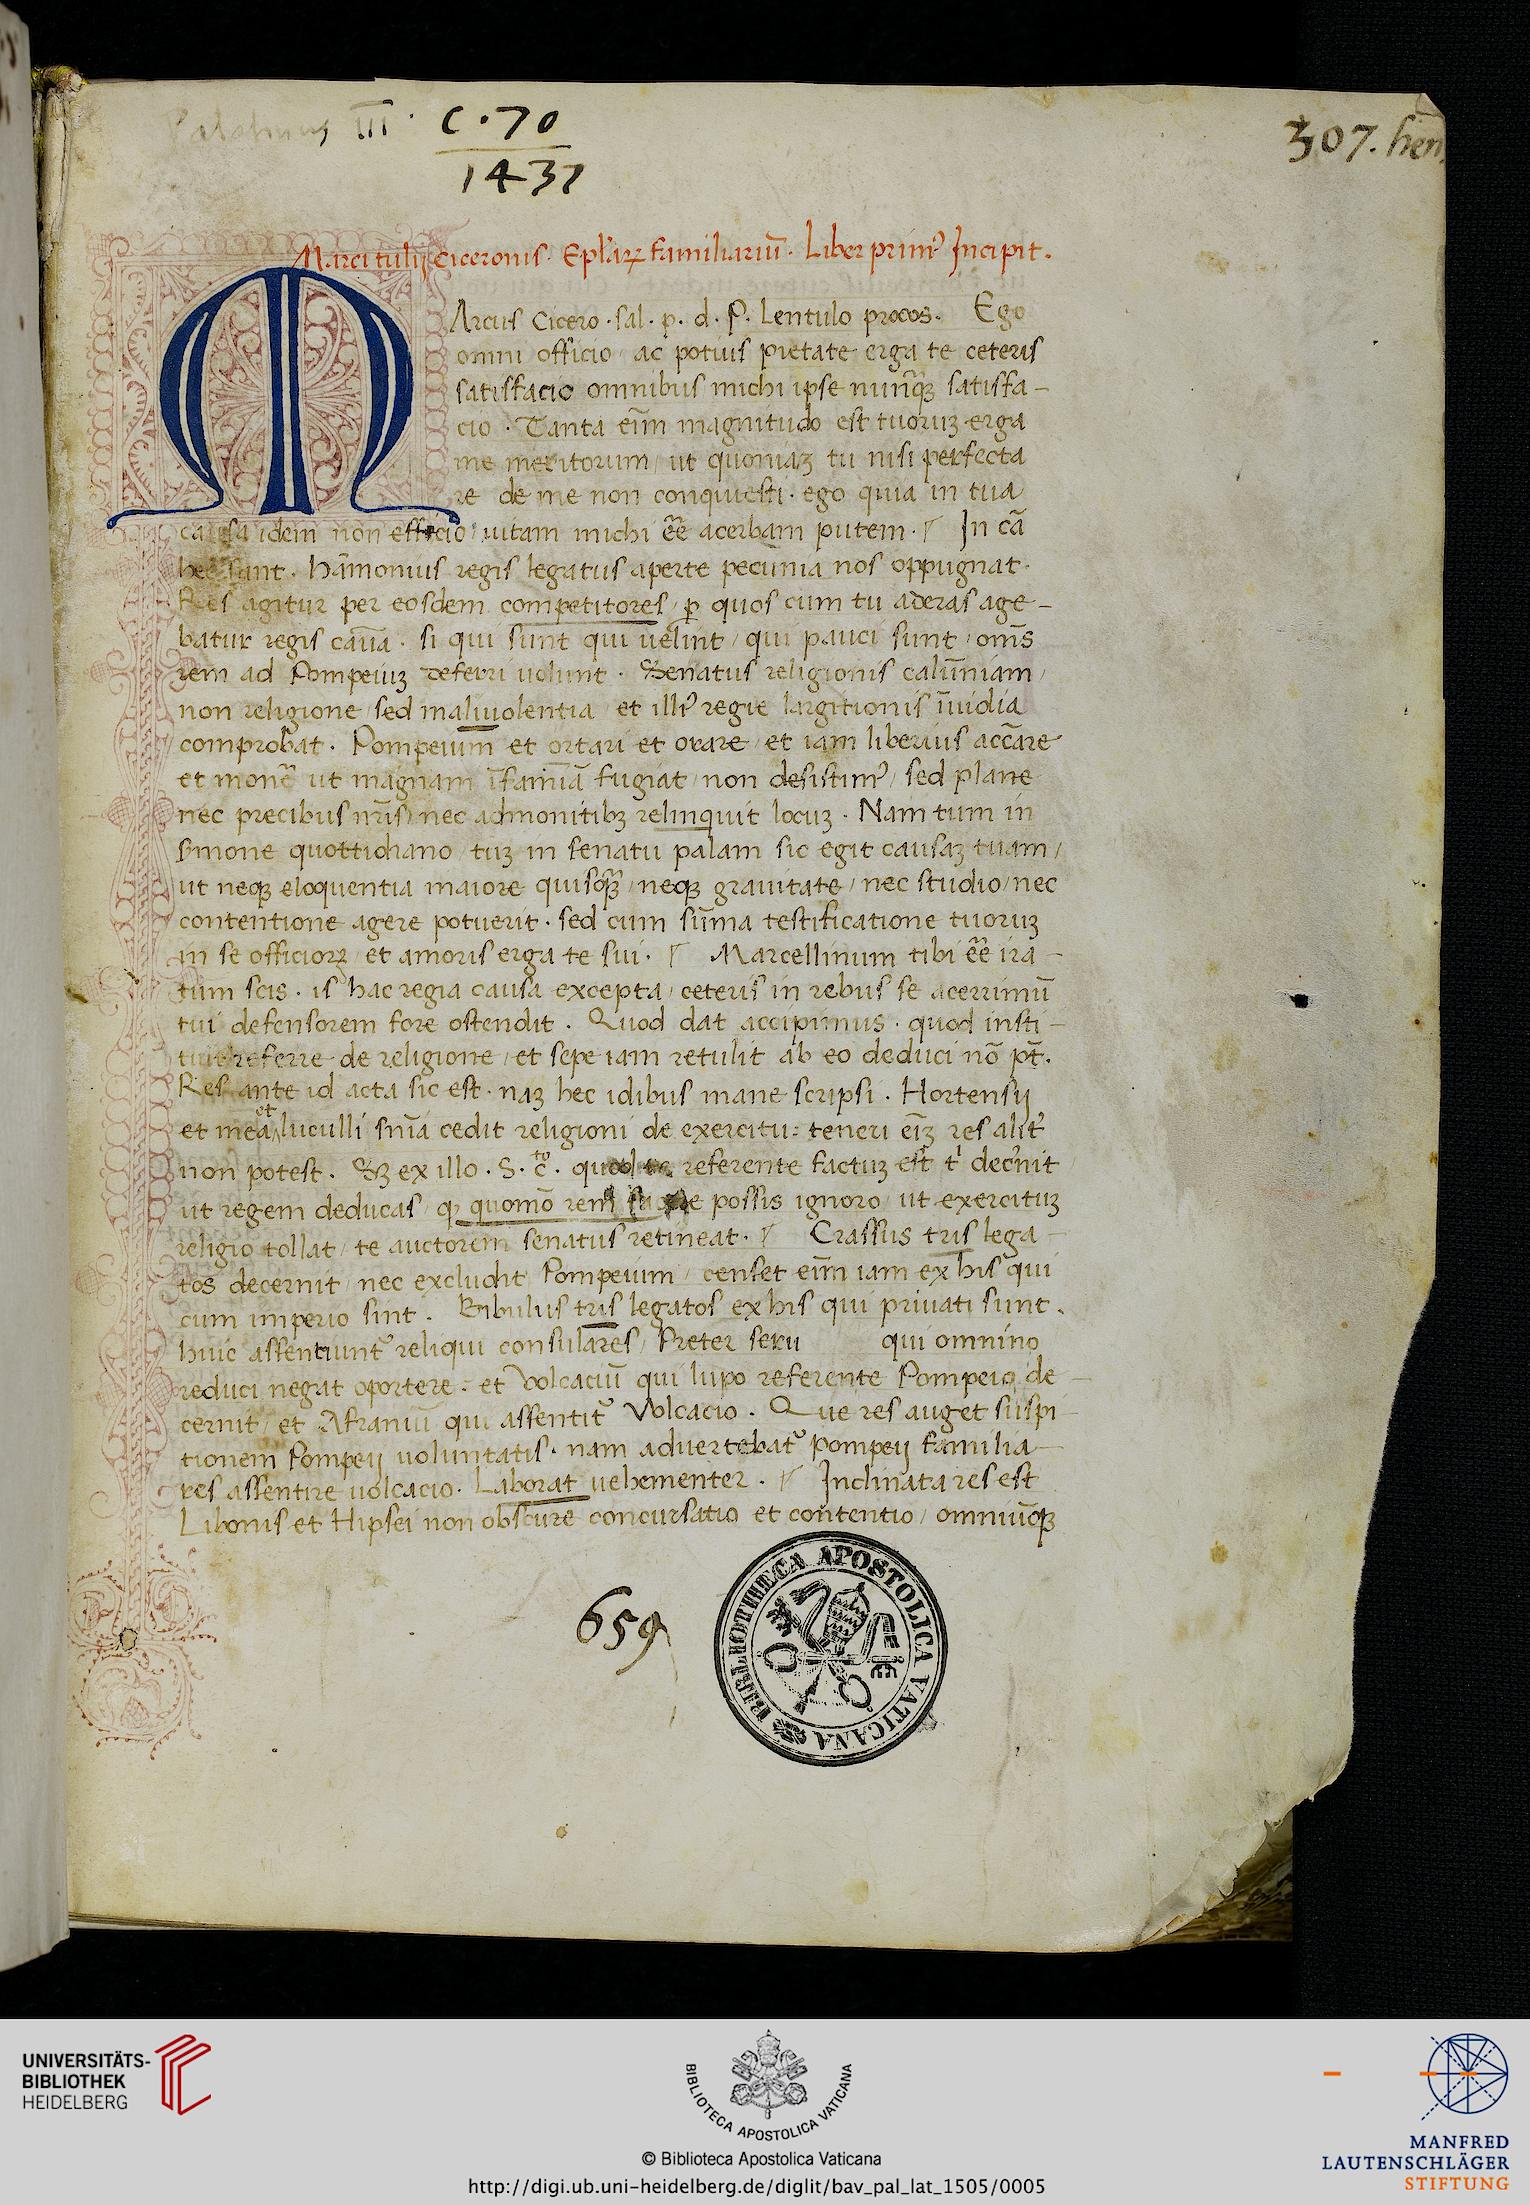 Palatinus III · C · 70
1431
307. hen
Marci tulij ciceronis · Epl'arꝝ familiariū · Liber primꝰ Incipit .
MArcus Cicero · sal · p · d · P · Lentulo procos . Ego
omni officio / ac potius pietate erga te ceteris
satisfacio omnibus michi ipse nunq̃ꝫ satisfa-
cio · Tanta eīm magnitudo est tuoruꝫ erga
me meritorum / ut quoniaꝫ tu nisi perfecta
re de me non conquiesti · ego quia in tua
causa idem non efficio / uitam michi eē̃ acerbam putem · In cā
hec sunt . hāmonius regis legatus aperte pecunia nos oppugnat ·
Res agitur per eosdem competitores / ꝑ quos cum tu aderas age-
batur regis cauā · si qui sunt qui uelint / qui pauci sunt / om̄s
rem ad Pompeiuꝫ deferri uolunt · Senatus religionis calūniam /
non religione / sed maliuolentia / et illiꝰ regie largitionis īuidia
comprobat · Pompeium et ortari et orare / et iam liberius accãre
et monẽ ut magnam īfamiā fugiat / non desistimꝰ / sed plane
nec precibus nr̄is / nec admonitibꝫ relinquit locuꝫ · Nam tum in
s̃mone quottidiano / tuꝫ in senatu palam sic egit causaꝫ tuam /
ut neqꝫ eloquentia maiore quisq̃ꝫ / neqꝫ grauitate / nec studio / nec
contentione agere potuerit · sed cum sūma testificatione tuoruꝫ
in se officiorꝝ / et amoris erga te sui · Marcellinum tibi eē̃ ira-
tum scis · is hac regia causa excepta / ceteris in rebus se acerrimū
tui defensorem fore ostendit . Quod dat accipimus · quod insti-
tuit referre de religione / et sepe iam retulit ab eo deduci nō pt̄.
Res ante id acta sic est · naꝫ hec idibus mane scripsi . Hortensij
et mea et luculli sn̄ia cedit religioni de exercitu : teneri eīꝫ res alitꝰ
non potest . Sꝫ ex illo . S. cto . quod te referente factuꝫ est tⁱ dec̃nit
ut regem deducas / qꝫ quomō rem facere possis ignoro / ut exercituꝫ
religio tollat / te auctorem senatus retineat · Crassus tris lega-
tos decernit / nec excludit Pompeium / censet eīm iam ex his qui
cum imperio sint . Bibulus tris legatos ex his qui priuati sunt .
huic assentiuntꝰ reliqui consulares / Preter seru qui omnino
reduci negat oportere : et Volcaciū qui lupo referente Pompeio de-
cernit / et Afraniū qui assentitꝰ Volcacio . Que res auget suspi-
tionem Pompeij uoluntatis · nam aduertebatꝰ pompeij familia-
res assentire uolcacio · Laborat uehementer . Inclinata res est
Libonis et Hipsei non obscure concursatio et contentio / omniūqꝫ
659
BIBLIOTHECA APOSTOLICA VATICANA
UNIVERSITÄTS-
BIBLIOTHEK
HEIDELBERG
BIBLIOTECA APOSTOLICA VATICANA
© Biblioteca Apostolica Vaticana
http://digi.ub.uni-heidelberg.de/diglit/bav_pal_lat_1505/0005
MANFRED
LAUTENSCHLÄGER
STIFTUNG